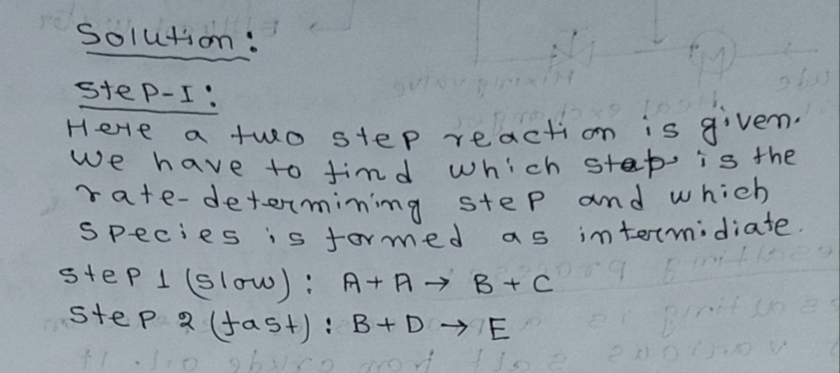 Solution:
Step-I:
Here a two step reaction is given.
We have to find which step is the
rate-determining step and which
species is formed as intermidiate.
Step 1 (slow): A + A → B + C
Step 2 (fast): B + D → E